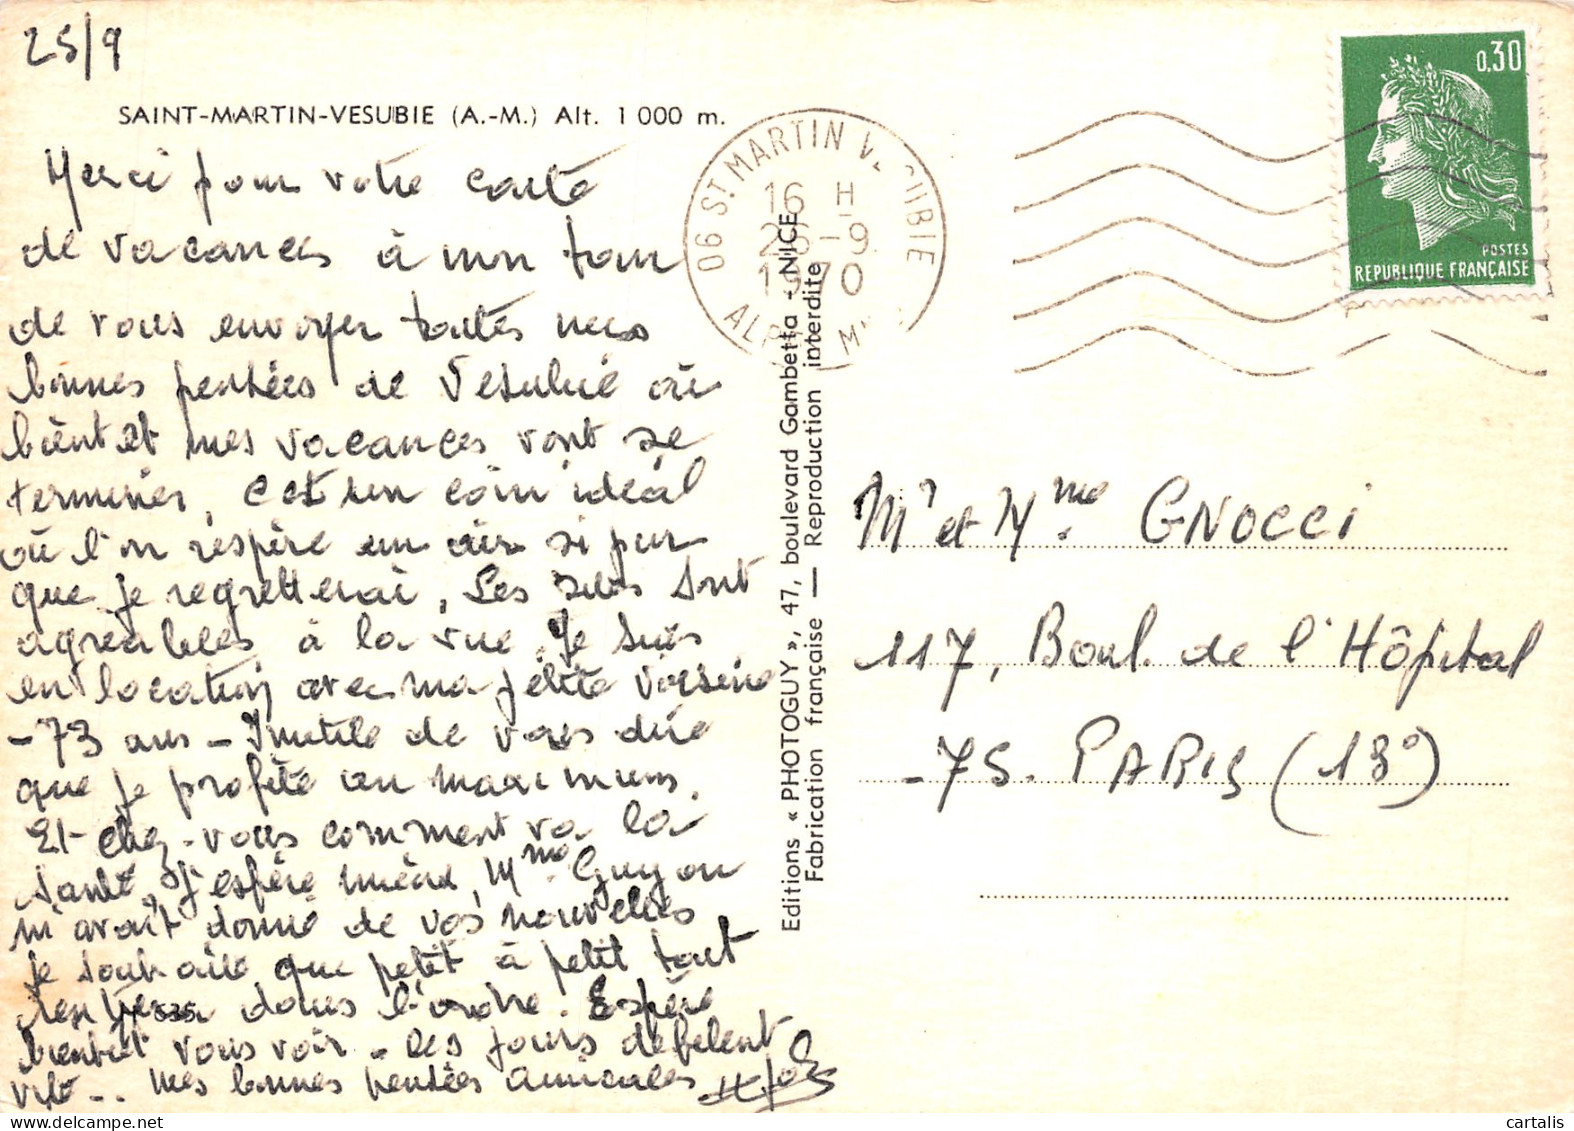 25/9
SAINT-MARTIN-VESUBIE (A.-M.) Alt. 1 000 m.
Merci pour votre carte
de vacances à mon tour
de vous envoyer toutes mes
bonnes pensées de Vesubie où
bientôt mes vacances vont se
terminer, c'est un coin idéal
où l'on respère un air si pur
que je regretterai, Les sites sont
agréables à la vue. Je suis
en location avec ma petite voisine
-73 ans - Inutile de vous dire
que je profite au maximum.
Et chez-vous comment va la
santé, J'espère mieux, Mme Guyon
m'avait donné de vos nouvelles
je souhaite que petit à petit tout
rentrera dans l'ordre. Espère
bientôt vous voir - les jours défilent
vite... mes bonnes pensées amicales
535
06 ST MARTIN VESUBIE
16 H
25-9
1970
ALPES M
0,30
POSTES
REPUBLIQUE FRANÇAISE
Editions « PHOTOGUY », 47, boulevard Gambetta - NICE
Fabrication française — Reproduction interdite
Mr et Mme GNOCCI
117, Boul. de l'Hôpital
-75. PARIS (13°)
cartalis